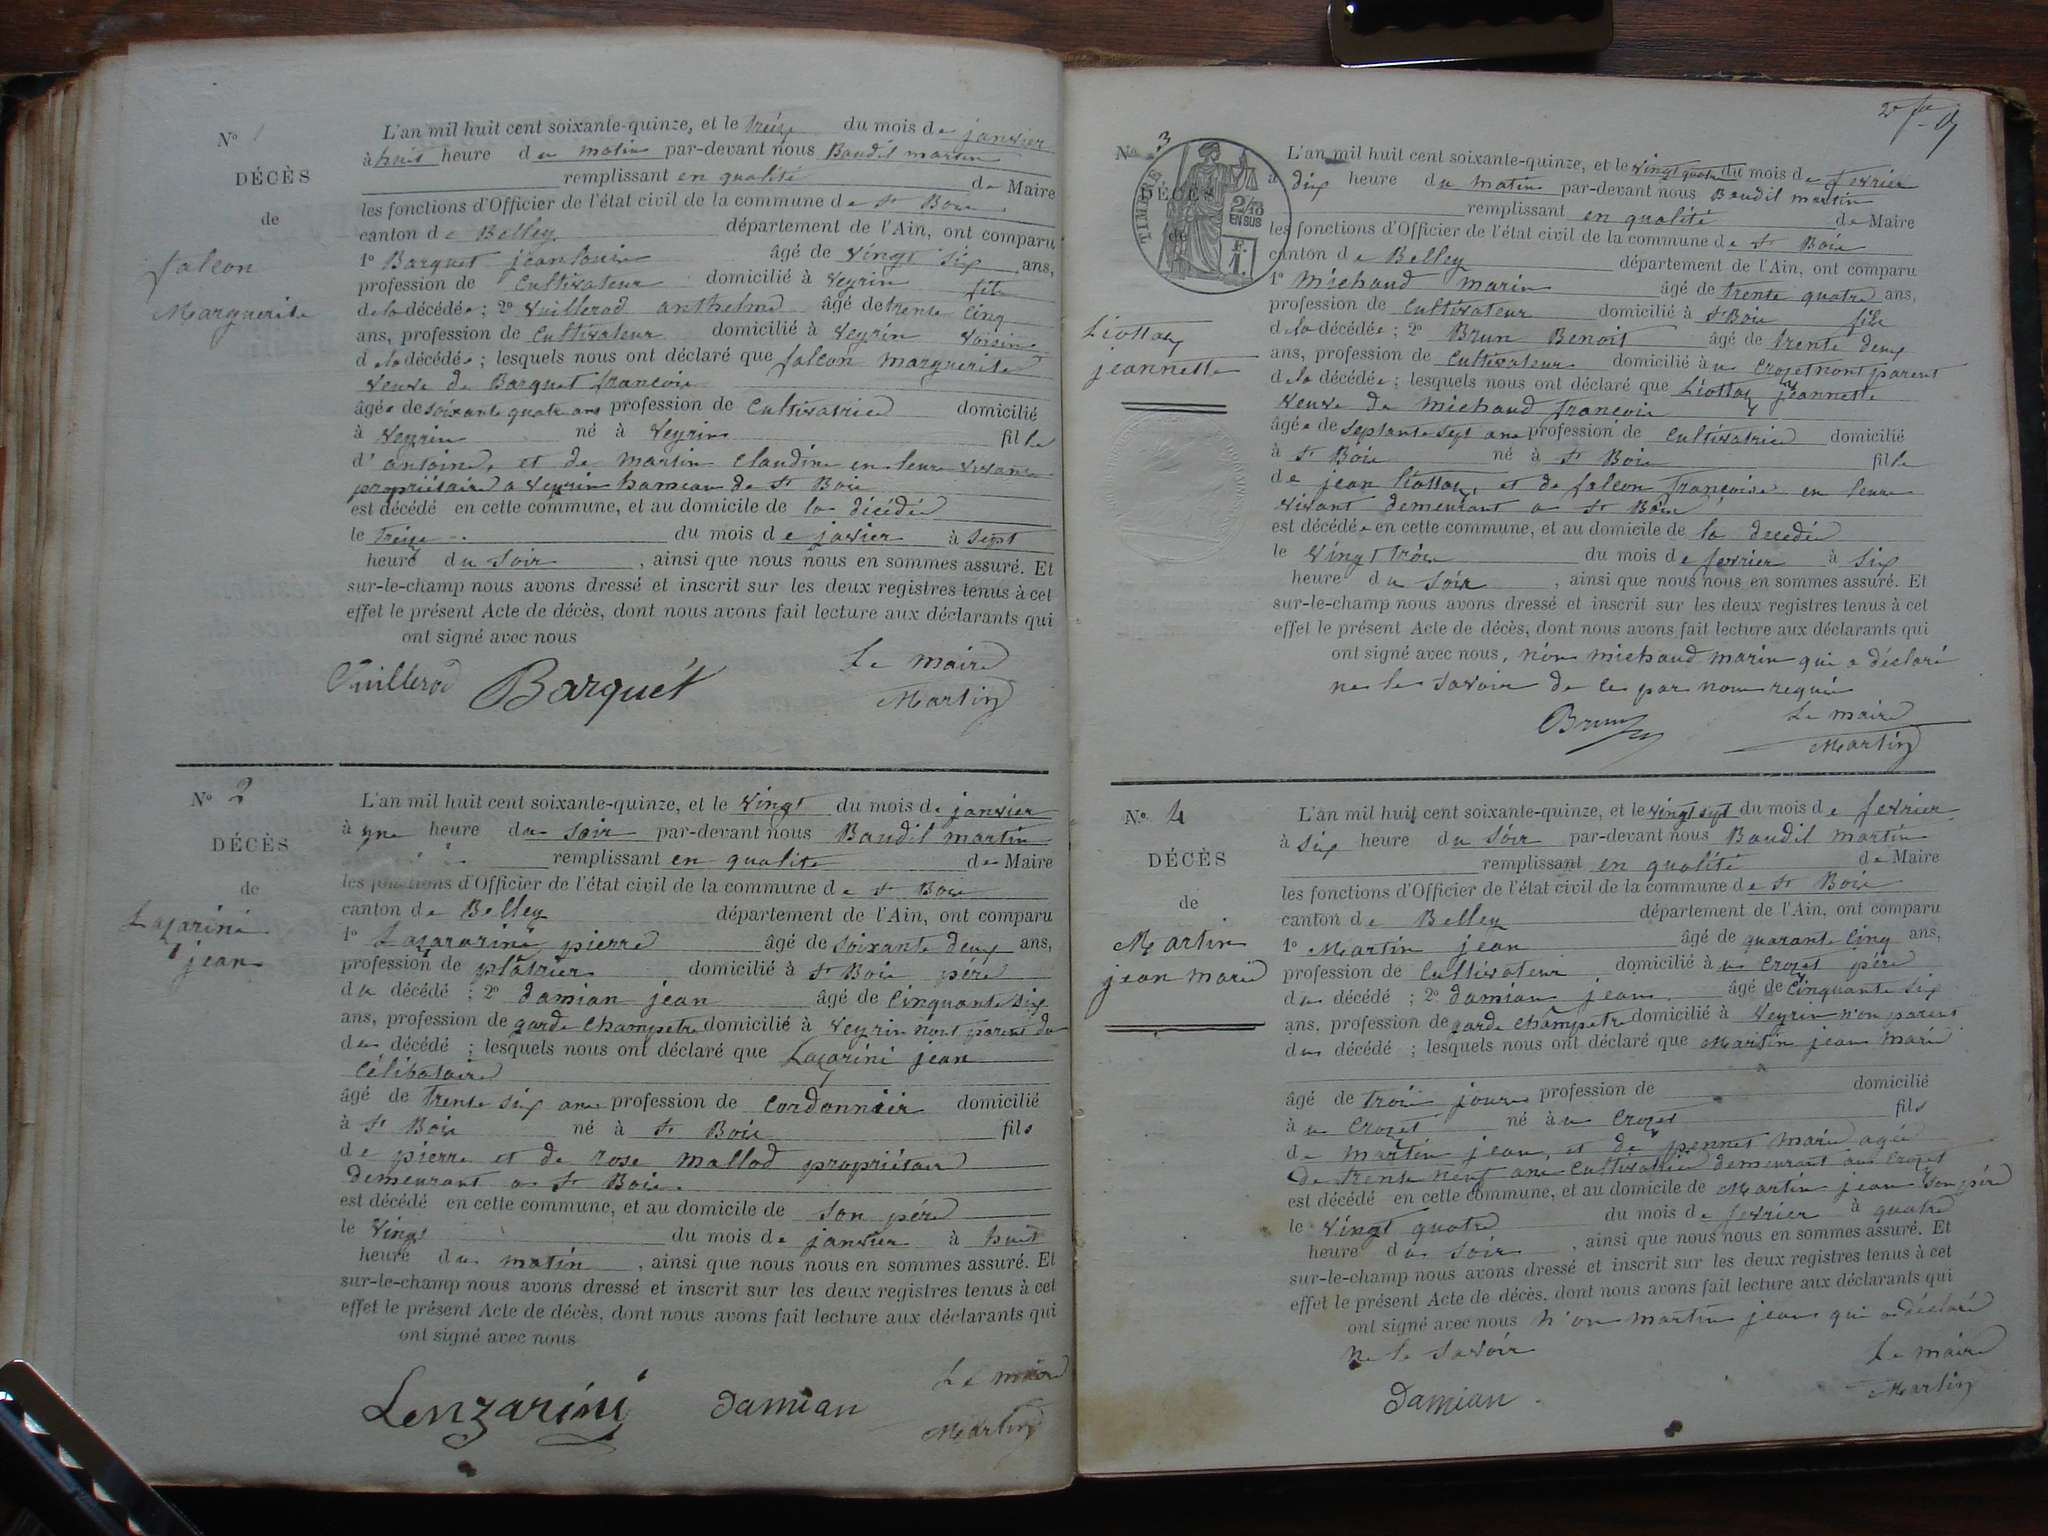 No 1
DÉCÈS
de
falcon
Marguerite
L'an mil huit cent soixante-quinze, et le treize du mois de janvier
à huit heure du matin par-devant nous Baudil martin
remplissant en qualité de Maire
les fonctions d'Officier de l'état civil de la commune de St Bois
canton de Belley département de l'Ain, ont comparu
1o Barquet jean louis âgé de vingt six ans,
profession de Cultivateur domicilié à veyrin fils
de la décédée ; 2o Vuillerod anthelme âgé de trente cinq
ans, profession de Cultivateur domicilié à veyrin voisin
de la décédée ; lesquels nous ont déclaré que falcon marguerite
veuve de Barquet francois
âgée de soixante quatre ans profession de Cultivatrice domicilié
à veyrin né à veyrin fille
d'antoine, et de martin claudine en leure vivant
propriétaire a veyrin hameau de St Bois
est décédé en cette commune, et au domicile de la décédée
le treize du mois de javier à sept
heure du soir , ainsi que nous nous en sommes assuré. Et
sur-le-champ nous avons dressé et inscrit sur les deux registres tenus à cet
effet le présent Acte de décès, dont nous avons fait lecture aux déclarants qui
ont signé avec nous
Vuillerod Barquet Le maire
Martin
No 2
DÉCÈS
de
Lazarini
jean
L'an mil huit cent soixante-quinze, et le vingt du mois de janvier
à une heure du soir par-devant nous Baudil martin
remplissant en qualite de Maire
les fonctions d'Officier de l'état civil de la commune de St Bois
canton de Belley département de l'Ain, ont comparu
1o Lazararini pierre âgé de soixante deux ans,
profession de plâtrier domicilié à St Bois pére
du décédé ; 2o damian jean âgé de Cinquante six
ans, profession de garde champetre domicilié à veyrin nont parent du
du décédé ; lesquels nous ont déclaré que Lazarini jean
Célibataire
âgé de trente six ans profession de Cordonnier domicilié
à St Bois né à St Bois fils
de pierre et de rose mallod propriétaire
demeurant a St Bois.
est décédé en cette commune, et au domicile de son pére
le vingt du mois de janvier à huit
heure du matin , ainsi que nous nous en sommes assuré. Et
sur-le-champ nous avons dressé et inscrit sur les deux registres tenus à cet
effet le présent Acte de décès, dont nous avons fait lecture aux déclarants qui
ont signé avec nous
Lenzarini Damian Le maire
Martin
No 3
TIMBRE
2/10
EN SUS
F.
1.
DÉCÈS
de
Liottay
jeannette
L'an mil huit cent soixante-quinze, et le vingt quatre du mois de fevrier
à dix heure du matin par-devant nous Baudil martin
remplissant en qualité de Maire
les fonctions d'Officier de l'état civil de la commune de St Bois
canton de Belley département de l'Ain, ont comparu
1o michaud marin âgé de trente quatre ans,
profession de Cultivateur domicilié à St Bois fils
de la décédée ; 2o Brun Benoit âgé de trente deux
ans, profession de Cultivateur domicilié à u Crozet nont parent
de la décédée ; lesquels nous ont déclaré que Liottay jeannette
veuve de michaud francois
âgée de septante sept ans profession de Cultivatrice domicilié
à St Bois né à St Bois fille
de jean liottay, et de falcon françoise en leure
vivant demeurant a St Bois
est décédée en cette commune, et au domicile de la decedée
le vingt trois du mois de fevrier à six
heure du soir , ainsi que nous nous en sommes assuré. Et
sur-le-champ nous avons dressé et inscrit sur les deux registres tenus à cet
effet le présent Acte de décès, dont nous avons fait lecture aux déclarants qui
ont signé avec nous, non michaud marin qui a déclaré
ne le savoir de ce par nous requis
Brun Le maire
Martin
No 4
DÉCÈS
de
Martin
jean marie
L'an mil huit cent soixante-quinze, et le vingt sept du mois de fevrier
à six heure du sóir par-devant nous Baudil martin
remplissant en qualité de Maire
les fonctions d'Officier de l'état civil de la commune de St Bois
canton de Belley département de l'Ain, ont comparu
1o Martin jean âgé de quarante Cinq ans,
profession de Cultivateur domicilié à u Crozet pére
du décédé ; 2o damian jean âgé de Cinquante six
ans, profession de garde champetre domicilié à veyrin n'on parent
du décédé ; lesquels nous ont déclaré que Martin jean marie
âgé de trois jours profession de domicilié
à u Crozet né à u Crozet fils
de martin jean, et de pennet marie agée
de trente neuf ans Cultivatrice demeurant au Crozet
est décédé en cette commune, et au domicile de Martin jean son pére
le vingt quatre du mois de fevrier à quatre
heure du soir , ainsi que nous nous en sommes assuré. Et
sur-le-champ nous avons dressé et inscrit sur les deux registres tenus à cet
effet le présent Acte de décès, dont nous avons fait lecture aux déclarants qui
ont signé avec nous n'on martin jean qui a déclaré
ne le savoir
Damian Le maire
Martin